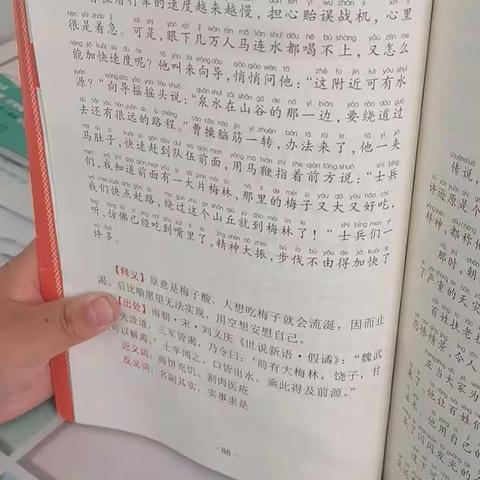 着行军的速度越来越慢，担心贻误战机，心里
很是着急。可是，眼下几万人马连水都喝不上，又怎么
能加快速度呢？他叫来向导，悄悄问他：“这附近可有水
源？”向导摇摇头说：“泉水在山谷的那一边，要绕道过
去还有很远的路程。”曹操脑筋一转，办法来了，他一夹
马肚子，快速赶到队伍前面，用马鞭指着前方说：“士兵
们，我知道前面有一大片梅林，那里的梅子又大又好吃，
我们快点赶路，绕过这个山丘就到梅林了！”士兵们一
听，仿佛已经吃到嘴里了，精神大振，步伐不由得加快了
许多。
【释义】原意是梅子酸，人想吃梅子就会流涎，因而止
渴。后比喻愿望无法实现，用空想安慰自己。
【出处】南朝·宋·刘义庆《世说新语·假谲》：“魏武
失汲道，三军皆渴，乃令曰：‘前有大梅林，饶子，甘
可以解渴。’士卒闻之，口皆出水，乘此得及前源。”
近义词：画饼充饥、割肉医疮
反义词：名副其实、实事求是
— 66 —
传说，
许逊原是个
样神，都称他
那时，朝
了严重的天灾
百姓扶老
悲惨情景，令人
正当大家为
来。他让百姓们
来，他用自己的